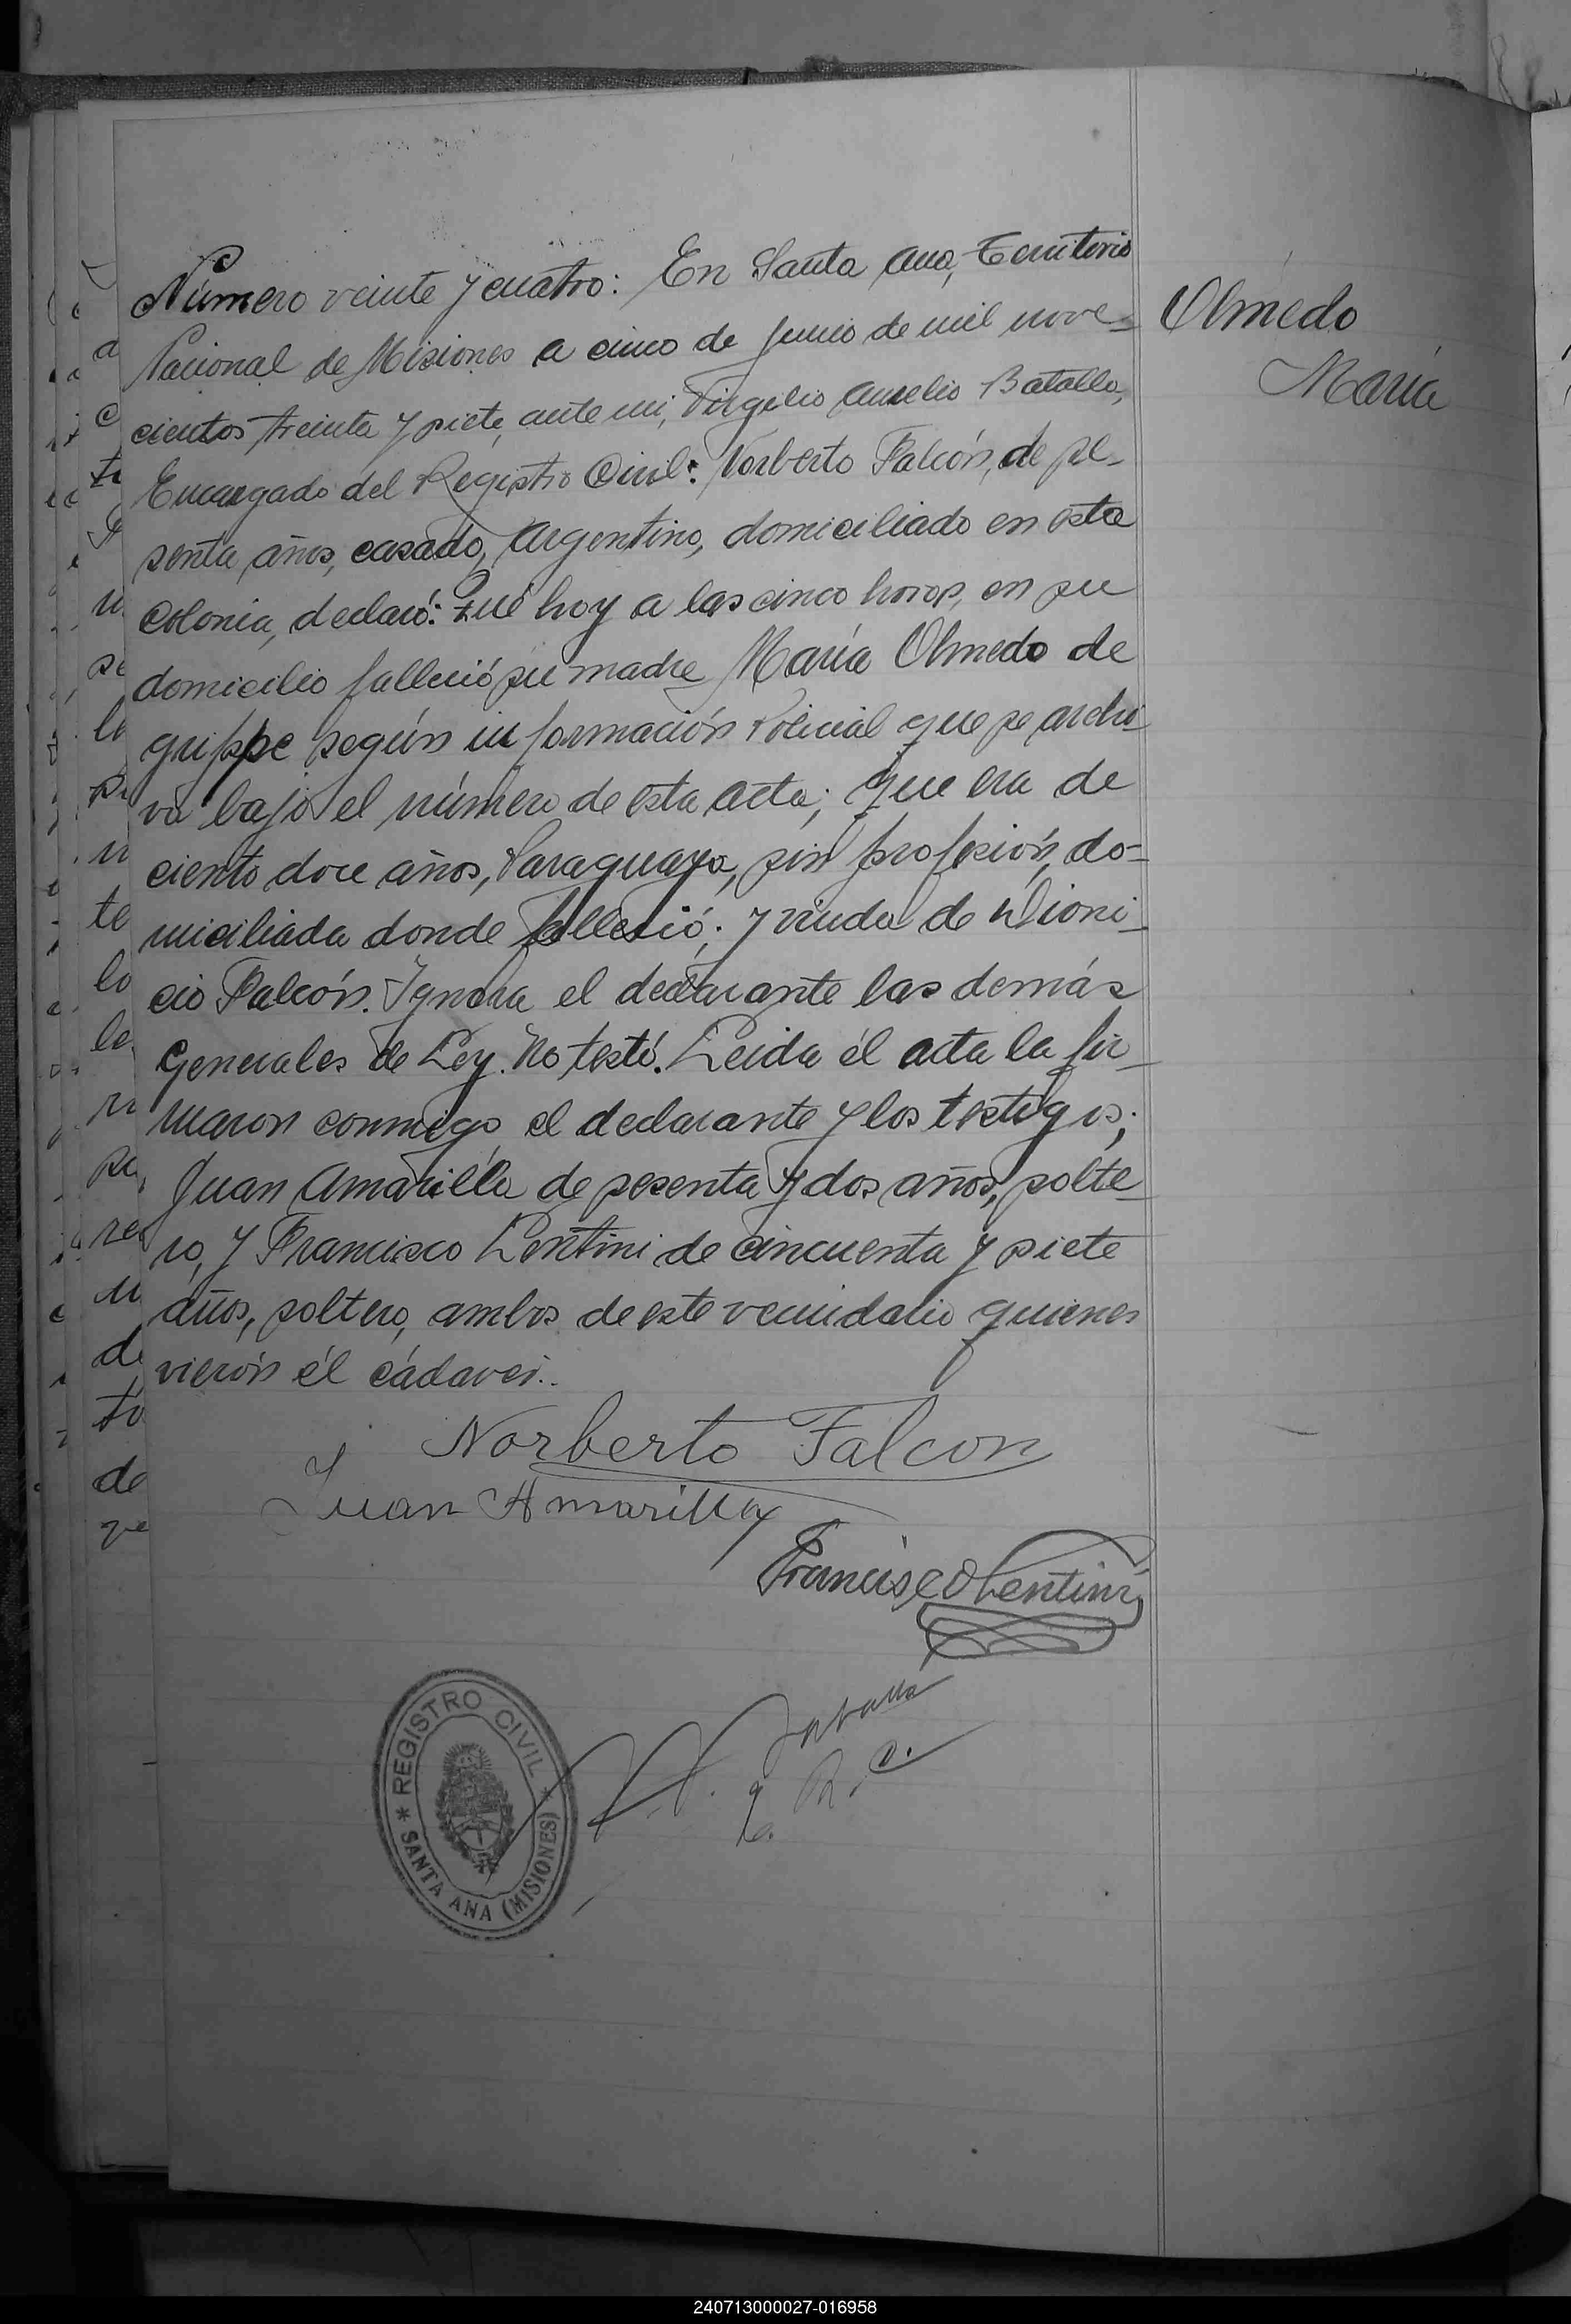 Número veinte y cuatro: En Santa Ana, Territorio
Nacional de Misiones a cinco de Junio de mil nove-
cientos treinta y siete, ante mi, Virgilio Aurelio Batalla,
Encargado del Registro Civil: Norberto Falcón, de se-
senta años, casado, Argentino, domiciliado en esta
Colonia, declaró: Que hoy a las cinco horas, en su
domicilio falleció su madre María Olmedo de
grippe según información Policial que se archi-
va bajo el número de esta acta; que era de
ciento doce años, Paraguaya, sin profesión, do-
miciliada donde falleció; y viuda de Dioni-
cio Falcón. Ignora el declarante las demás
Generales de Ley. No testó. Leida el acta la fir-
maron conmigo el declarante y los testigos;
Juan Amarilla de sesenta y dos años, solte-
ro, y Francisco Lentini de cincuenta y siete
años, soltero, ambos de este vecindario quienes
vierón él cádaver..
Olmedo
María
Norberto Falcon
Juan Amarilla
Francisco Lentini
REGISTRO CIVIL
* SANTA ANA (MISIONES) *
E. R. C.
240713000027-016958